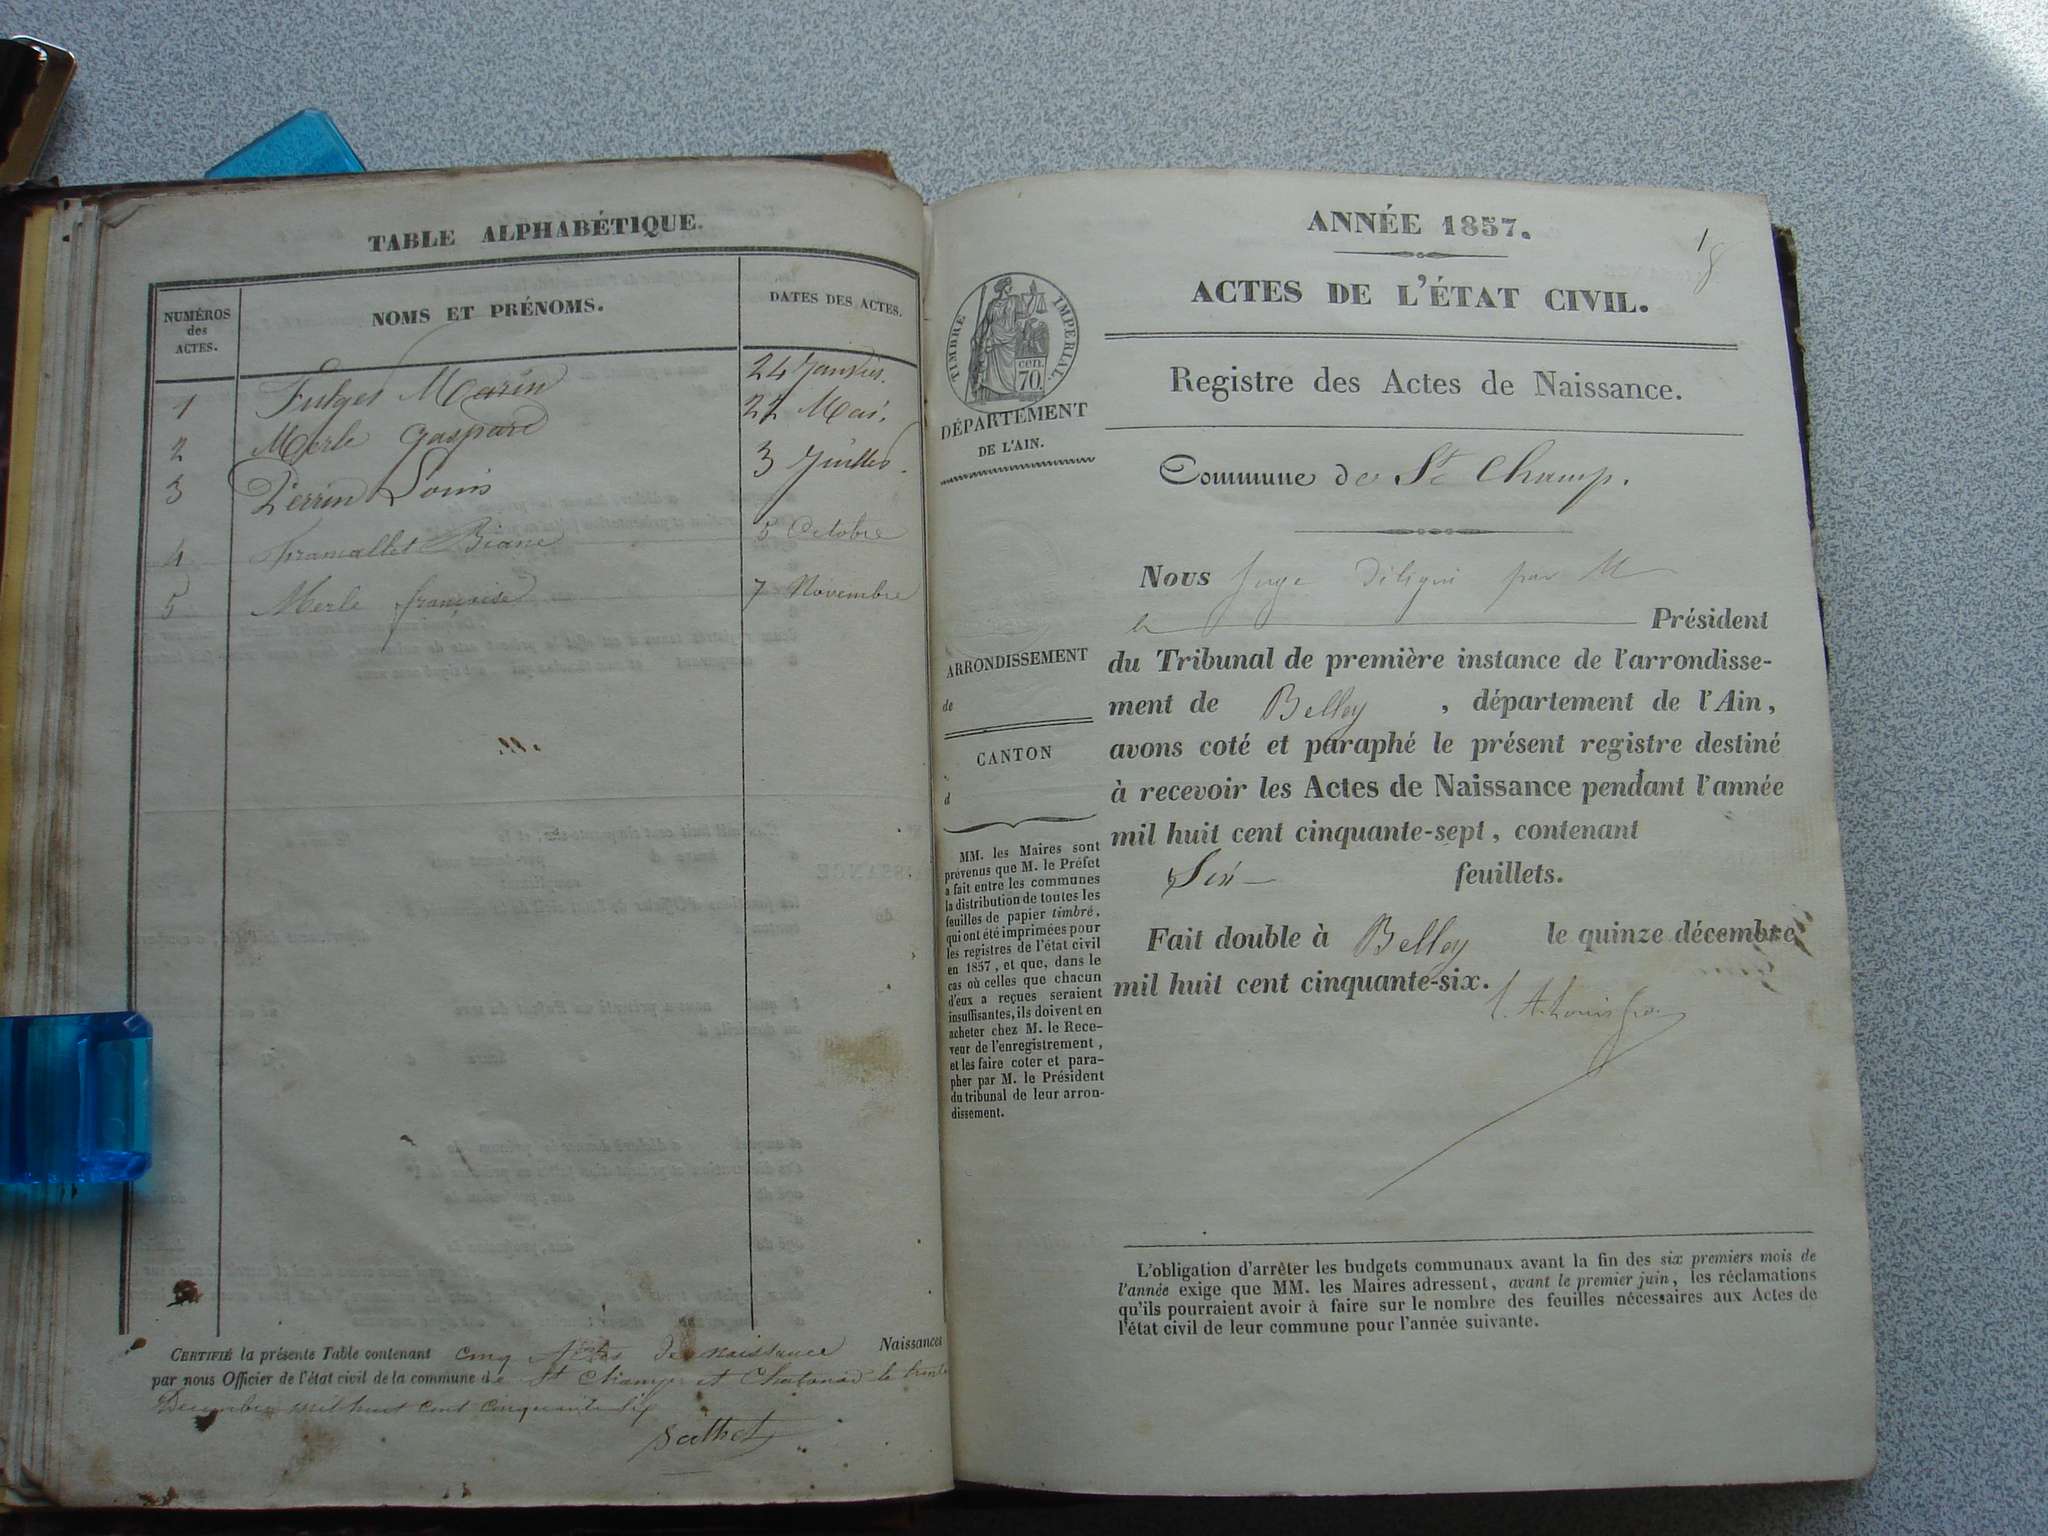 TABLE ALPHABÉTIQUE.
NUMÉROS des ACTES. NOMS ET PRÉNOMS. DATES DES ACTES.
1 Fulges Marin 24 Janvier.
2 Merle Gaspard 22 Mai.
3 Perrin Louis 3 Juillet.
4 5 Octobre
5 Merle françoise 7 Novembre
CERTIFIÉ la présente Table contenant cinq Actes de naissance Naissances
par nous Officier de l'état civil de la commune de St Champ et Chatonod le trente
Décembre mil huit cent cinquante six
ANNÉE 1857.
ACTES DE L'ÉTAT CIVIL.
TIMBRE IMPERIAL.
cen. 70.
DÉPARTEMENT
DE L'AIN.
Registre des Actes de Naissance.
Commune de St Champ.
Nous Juge délégué par M
le Président
du Tribunal de première instance de l'arrondisse-
ment de Belley, département de l'Ain,
avons coté et paraphé le présent registre destiné
à recevoir les Actes de Naissance pendant l'année
mil huit cent cinquante-sept, contenant
Six feuillets.
Fait double à Belley le quinze décembre
mil huit cent cinquante-six.
ARRONDISSEMENT
de
CANTON
d
MM. les Maires sont
prévenus que M. le Préfet
a fait entre les communes
la distribution de toutes les
feuilles de papier timbré,
qui ont été imprimées pour
les registres de l'état civil
en 1857, et que, dans le
cas où celles que chacun
d'eux a reçues seraient
insuffisantes, ils doivent en
acheter chez M. le Rece-
veur de l'enregistrement,
et les faire coter et para-
pher par M. le Président
du tribunal de leur arron-
dissement.
L'obligation d'arrêter les budgets communaux avant la fin des six premiers mois de
l'année exige que MM. les Maires adressent, avant le premier juin, les réclamations
qu'ils pourraient avoir à faire sur le nombre des feuilles nécessaires aux Actes de
l'état civil de leur commune pour l'année suivante.